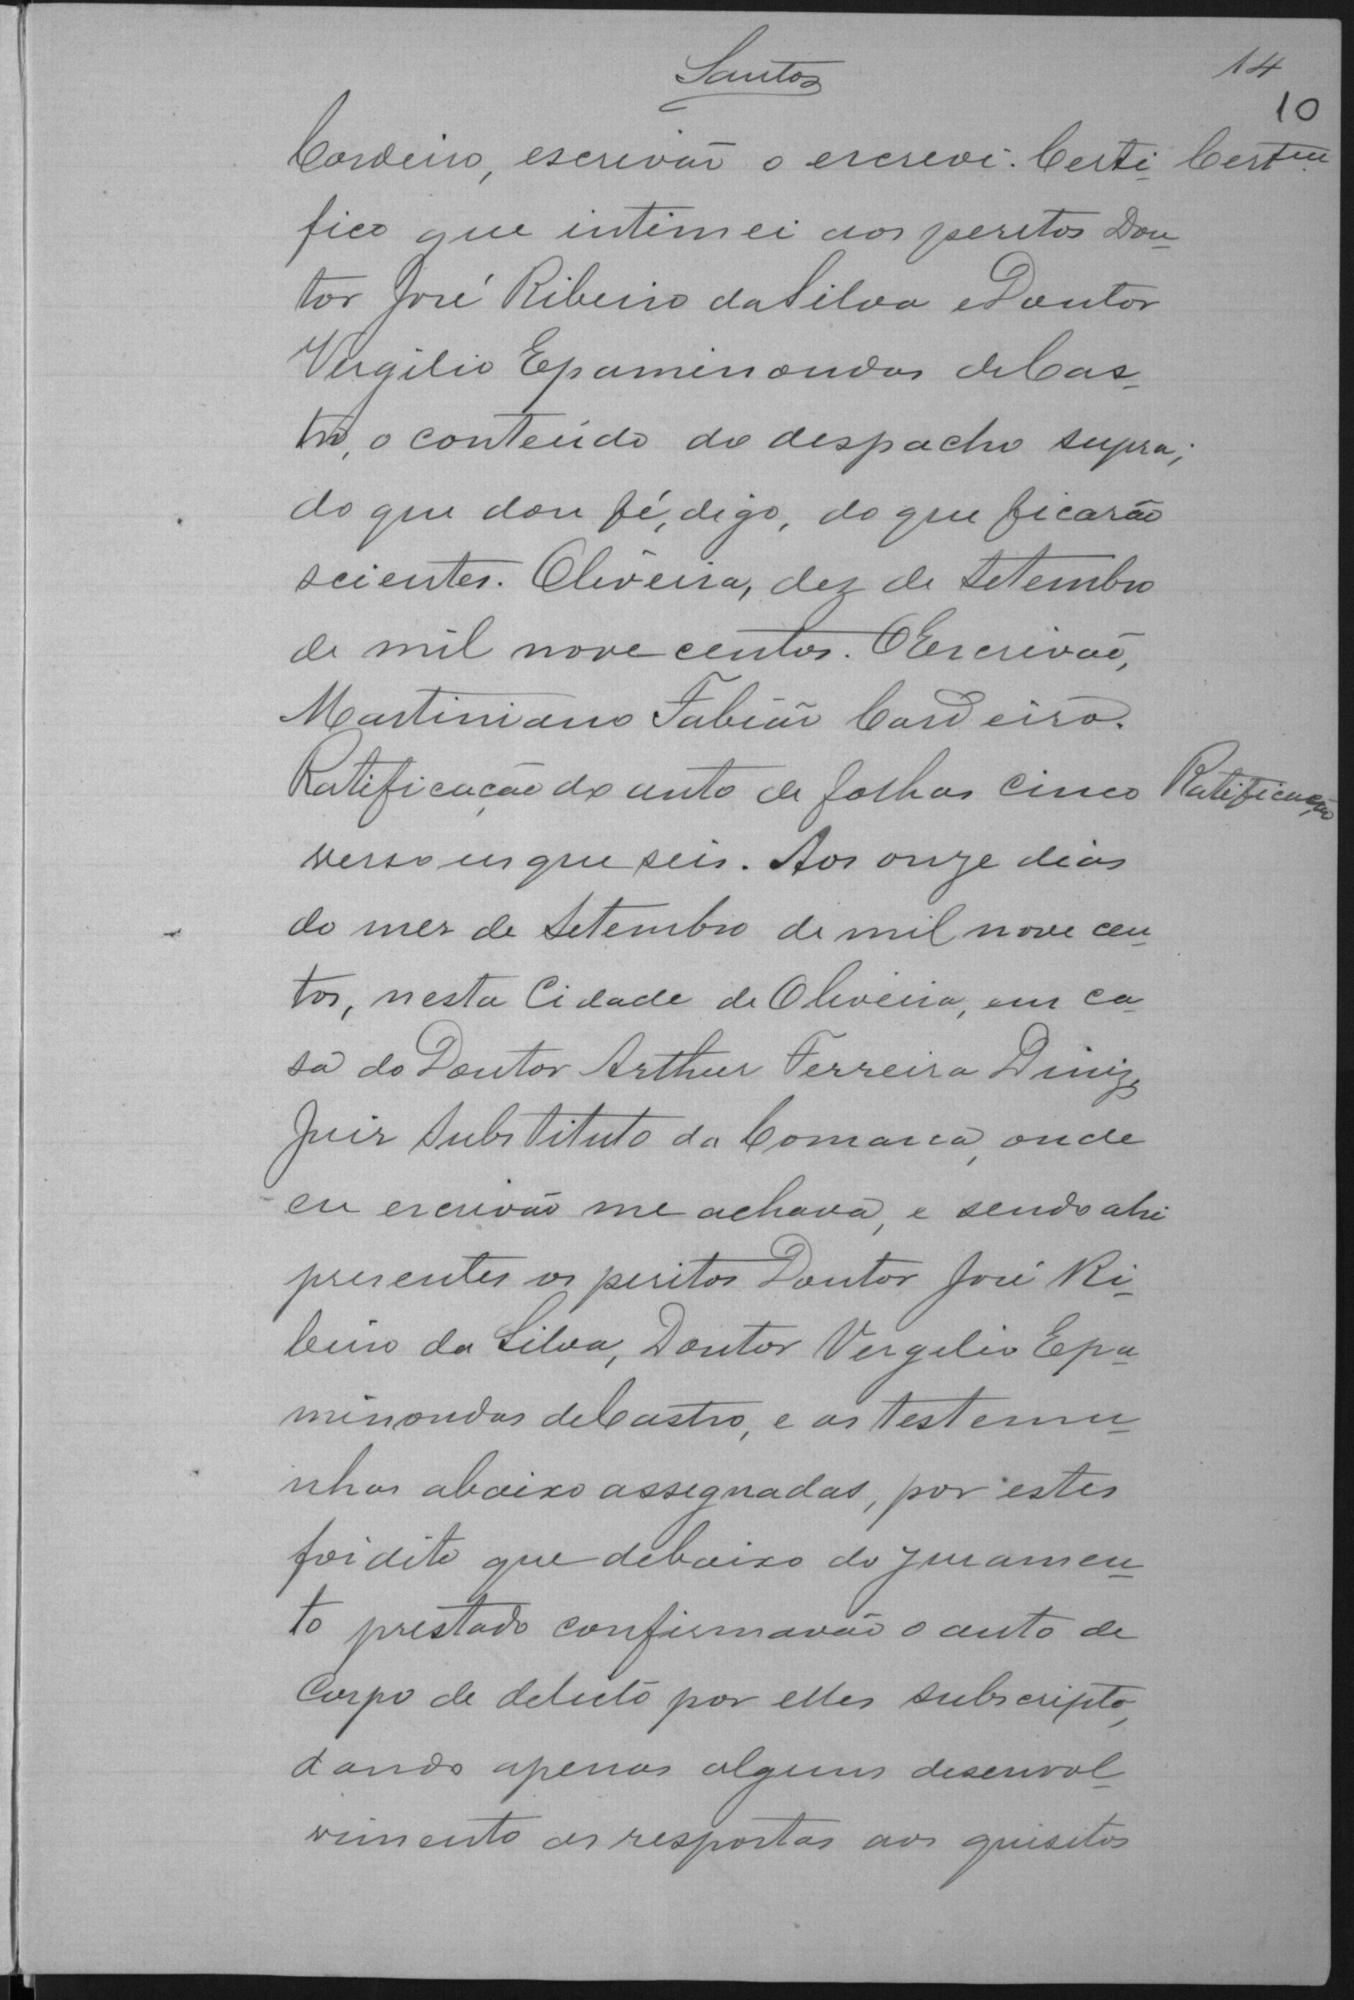 Santos
14
10
Cordeiro, escrivão o escrevi. Certi- Certam
fico que intimei aos peritos Dou-
tor José Ribeiro da Silva e Doutor
Vergilio Epaminondas de Cas-
tro, o conteúdo do despacho supra;
do que dou fé, digo, do que ficarão
scientes. Oliveira, dez de Setembro
de mil nove centos. O Escrivão,
Martiniano Fabião Cordeiro.
Ratificação do auto de folhas cinco Ratificação
verso us que seis. Aos onze dias
do mez de Setembro de mil nove cen-
tos, nesta Cidade de Oliveira, em ca-
sa do Doutor Arthur Ferreira Diniz,
Juiz Substituto da Comarca, onde
eu escrivão me achava, e sendo ahi
presentes os peritos Doutor José Ri-
beiro da Silva, Doutor Vergilio Epa-
minondas de Castro, e as testemu-
nhas abaixo assegnadas, por estes
foi dito que debaixo do juramen-
to prestado confirmavão o auto de
Corpo de delicto por elles subscripto,
dando apenas alguns desenvol-
vimento as respostas aos quisitos